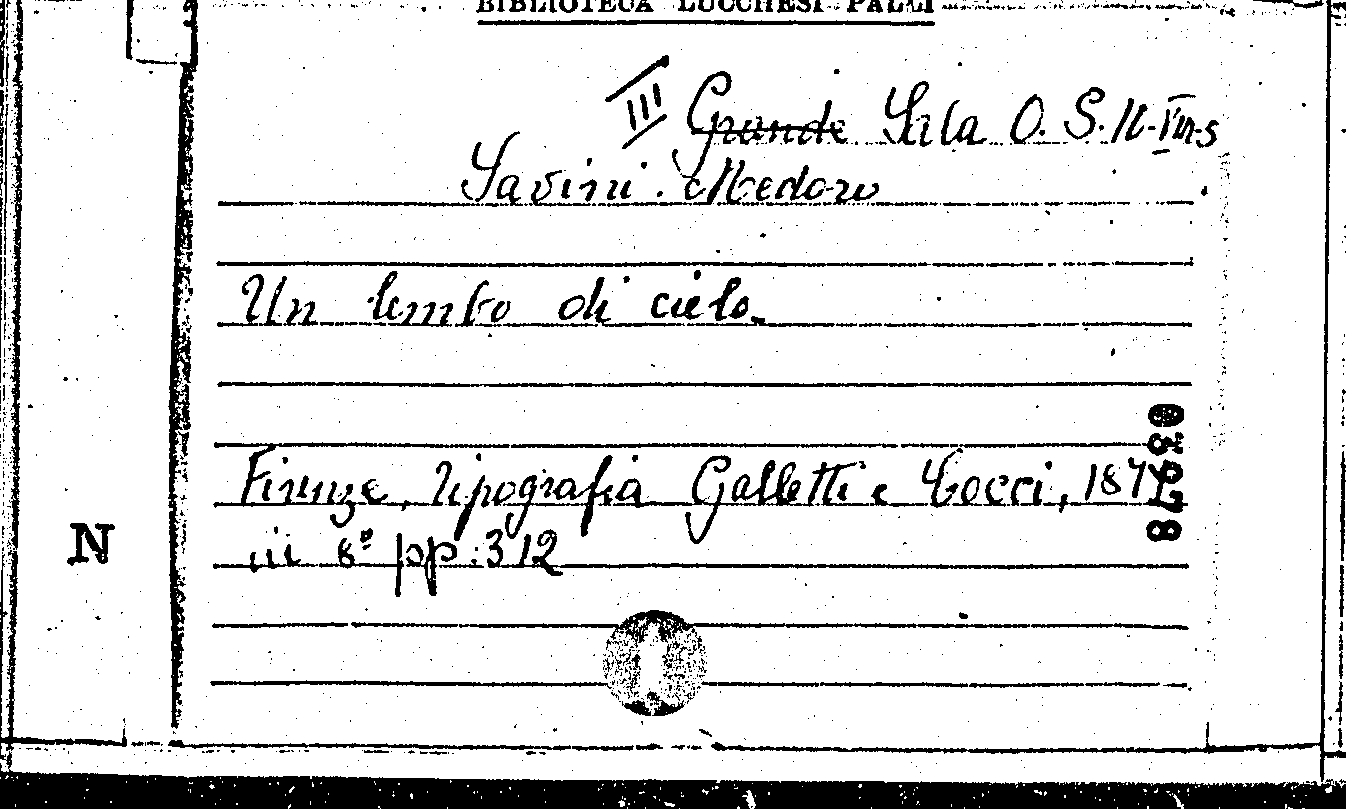 BIBLIOTECA LUCCHESI PALLI
III Grande Sala O. S. II-VIII-5
Savini Medoro
Un lembo di cielo.
Firenze, Tipografia Galletti e Cocci, 187
in 8º pp. 312
N